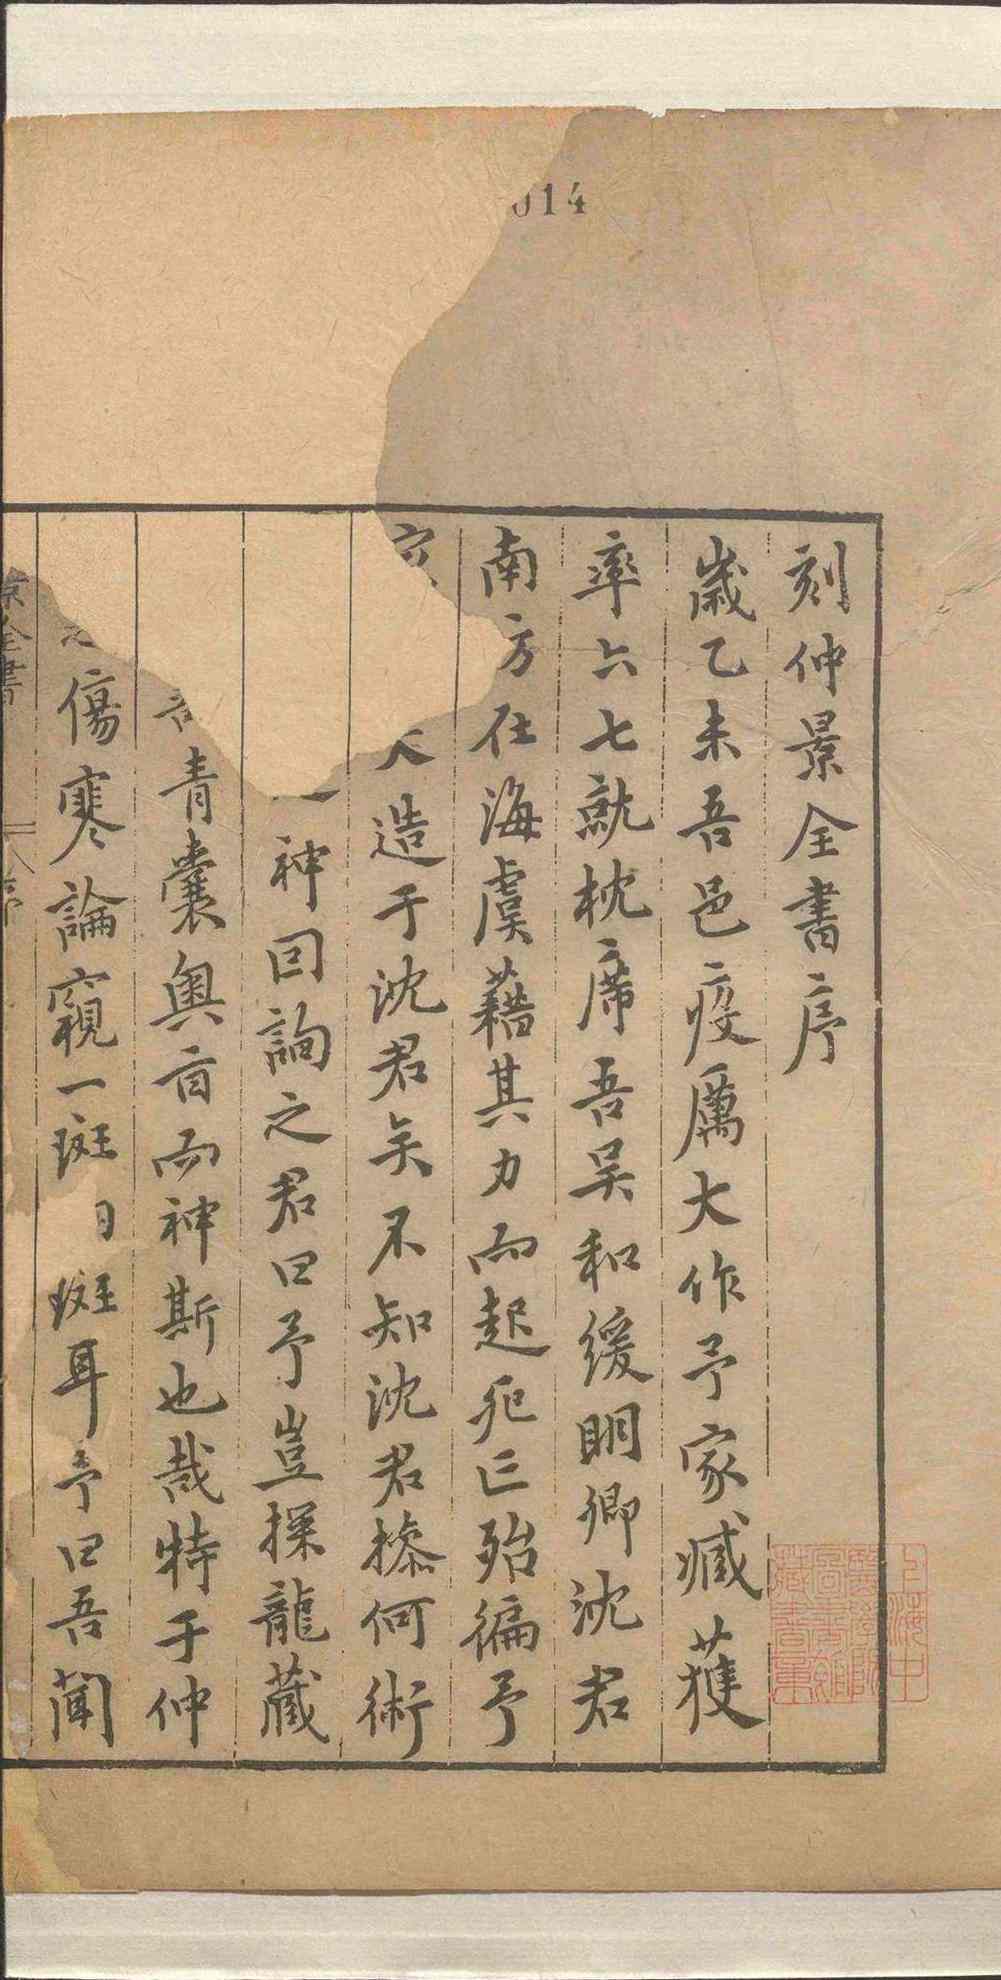 刻仲景全書序
歲乙未吾邑疫厲大作予家臧獲
率六七就枕席吾吳和緩明卿沈君
南方仕海虞藉其力而起死亡殆徧予
造于沈君矣不知沈君操何術
神回詢之君曰予豈探龍藏
青囊奧旨而神斯也哉特于仲
傷寒論窺一斑斑耳予曰吾聞
全書
序
014